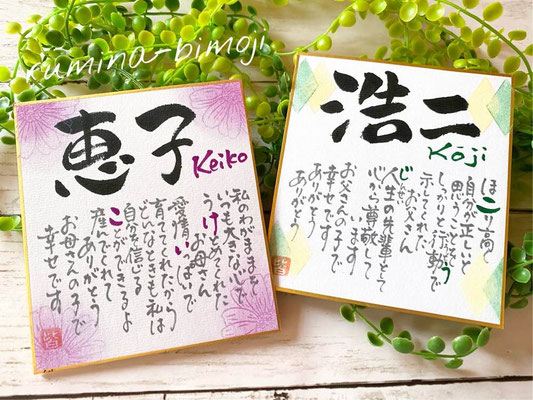 rumina-bimoji
恵子
Keiko
私のわがままを
いつも大きな心で
うけとめてくれた
お母さん
愛情いっぱいで
育ててくれたから
どんなときも私は
自分を信じる
ことができるよ
産んでくれて
ありがとう
お母さんの子で
幸せです
浩二
Koji
ほこり高く
自分が正しいと
思うことを
しっかりと行動で
示してくれた
お父さん
じんせい
人生の先輩として
心から尊敬して
います
お父さんの子で
幸せです
ありがとう
ありがとう